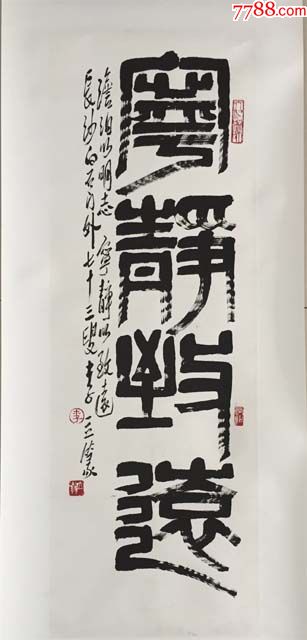 7788.com
寧靜致遠
澹泊以明志 寧靜以致遠
長沙白石門外七十三叟李立篆